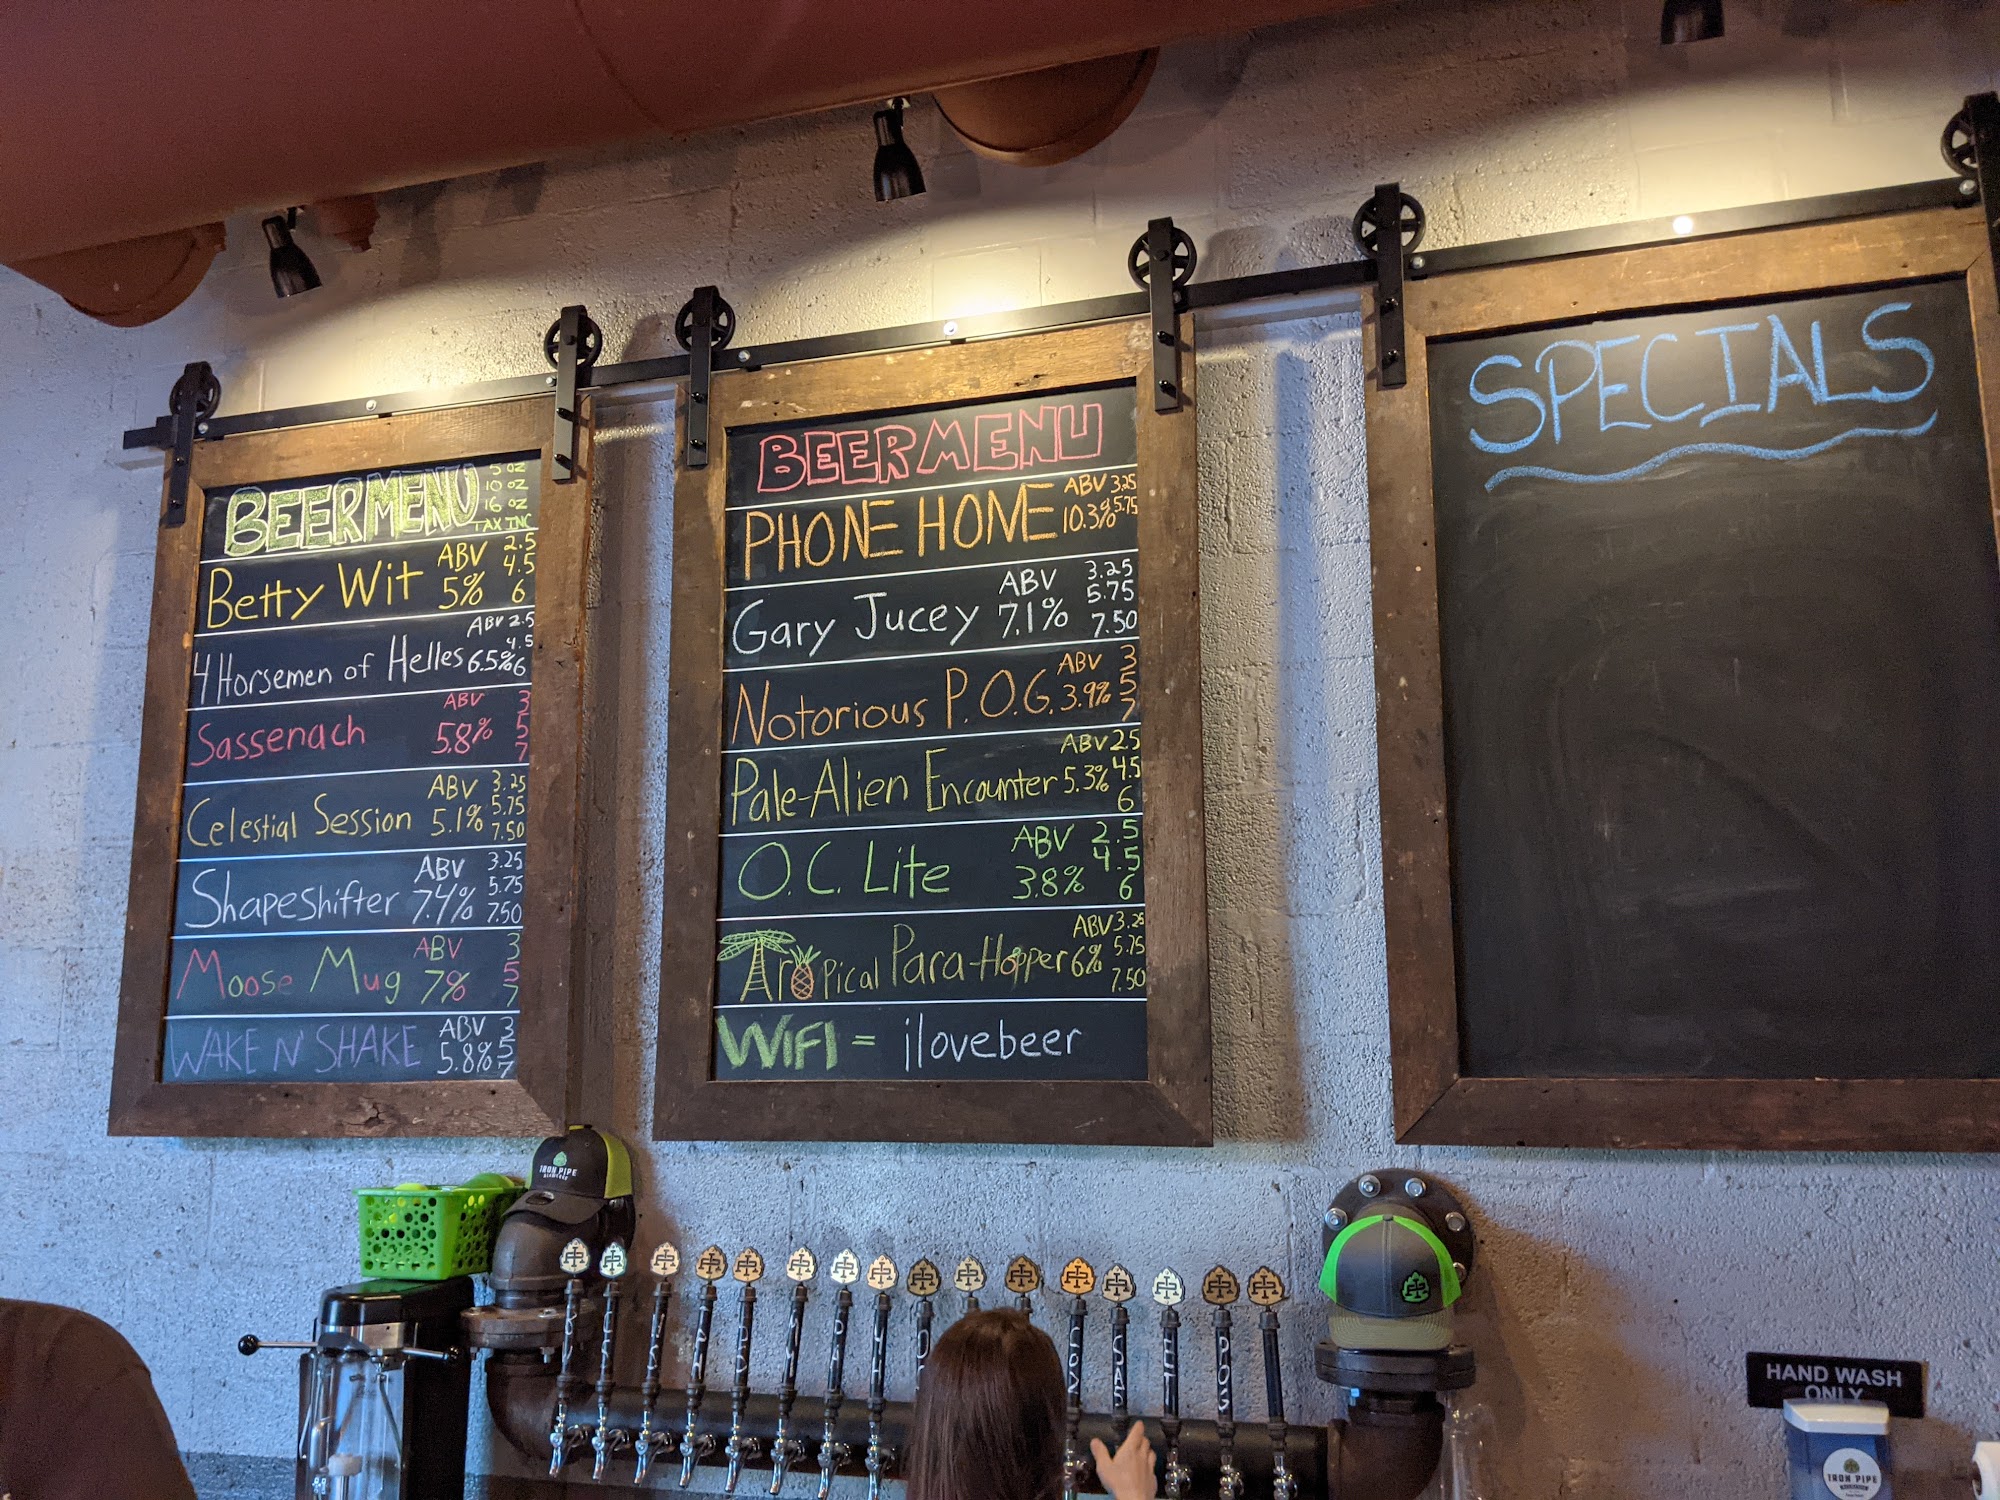 BEERMENU
5 oz
10 oz
16 oz
TAX INC
Betty Wit ABV 5% 2.5 4.5 6
4 Horsemen of Helles ABV 6.5% 2.5 4.5 6
Sassenach ABV 5.8% 3 5 7
Celestial Session ABV 5.1% 3.25 5.75 7.50
Shapeshifter ABV 7.4% 3.25 5.75 7.50
Moose Mug ABV 7% 3 5 7
WAKE N' SHAKE ABV 5.8% 3 5 7
BEERMENU
PHONE HOME ABV 10.3% 3.25 5.75
Gary Jucey ABV 7.1% 3.25 5.75 7.50
Notorious P.O.G. ABV 3.9% 3 5 7
Pale-Alien Encounter ABV 5.3% 2.5 4.5 6
O.C. Lite ABV 3.8% 2.5 4.5 6
Tropical Para-Hopper ABV 6% 3.25 5.75 7.50
WiFi = ilovebeer
SPECIALS
IRON PIPE
HAND WASH
ONLY
IRON PIPE